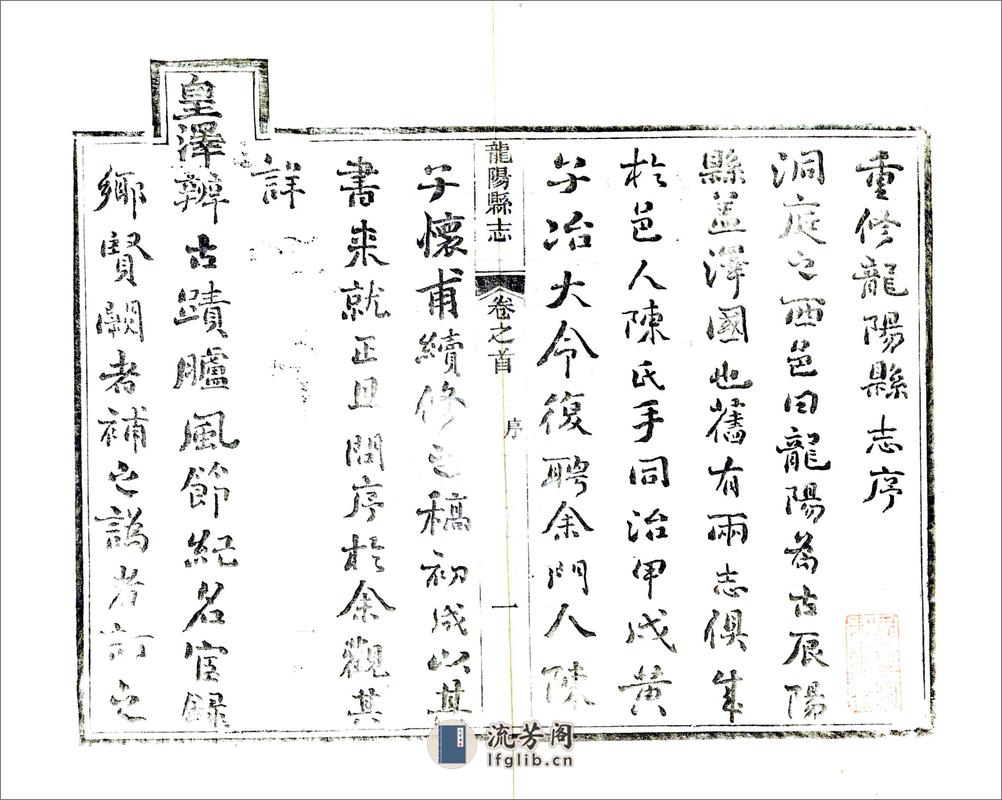 重修龍陽縣志序
洞庭之西邑曰龍陽為古辰陽
縣盖澤國也舊有兩志俱成
於邑人陳氏手同治甲戌黄
子冶大令復聘余門人陳
龍陽縣志
卷之首
序
一
子懷甫續修之稿初成以其
書来就正且問序於余觀其
詳
皇澤辨古蹟臚風節紀名宦録
鄉賢闕者補之譌者訂之
流芳阁
lfglib.cn